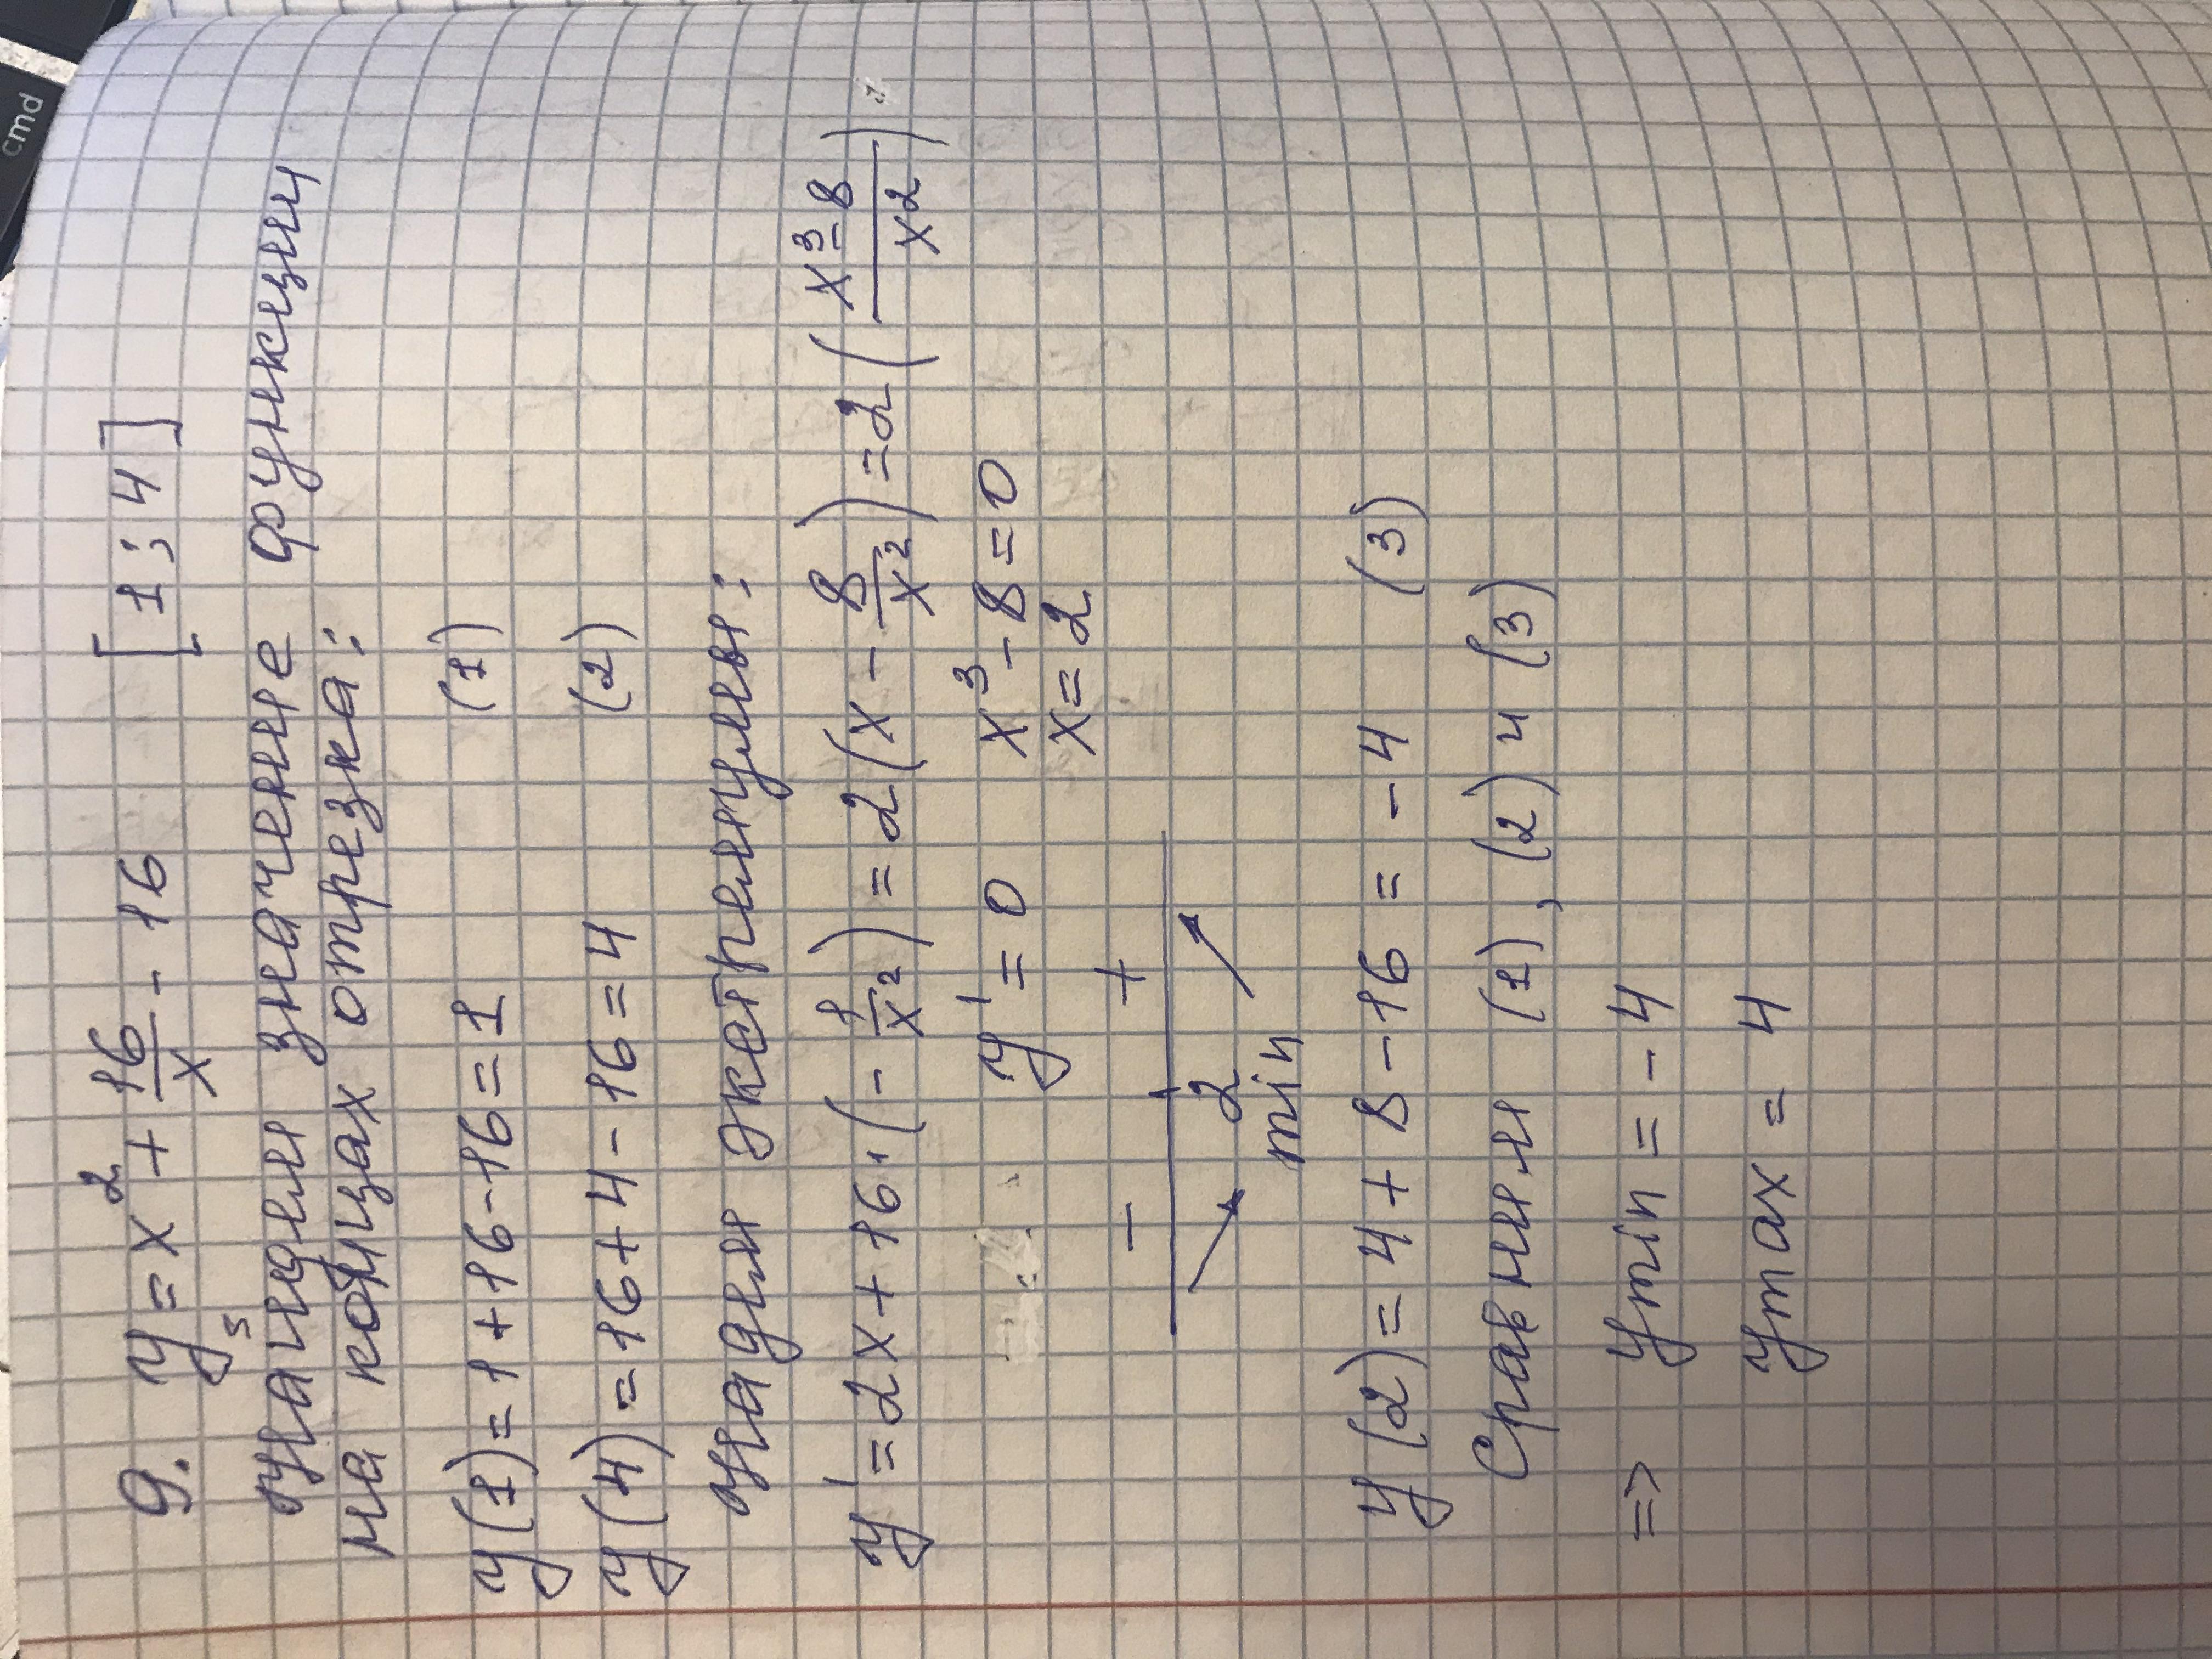 cmd
9. y = x² + 16/x - 16 [1; 4]
5
Найдём значение функции
на концах отрезка:
y(1) = 1 + 16 - 16 = 1 (1)
y(4) = 16 + 4 - 16 = 4 (2)
Найдём экстремумы:
y' = 2x + 16·(- 1/x²) = 2(x - 8/x²) = 2(x³-8/x²)
y' = 0 x³ - 8 = 0
x = 2
- +
2
min
y(2) = 4 + 8 - 16 = -4 (3)
Сравним (1), (2) и (3)
=> ymin = -4
ymax = 4